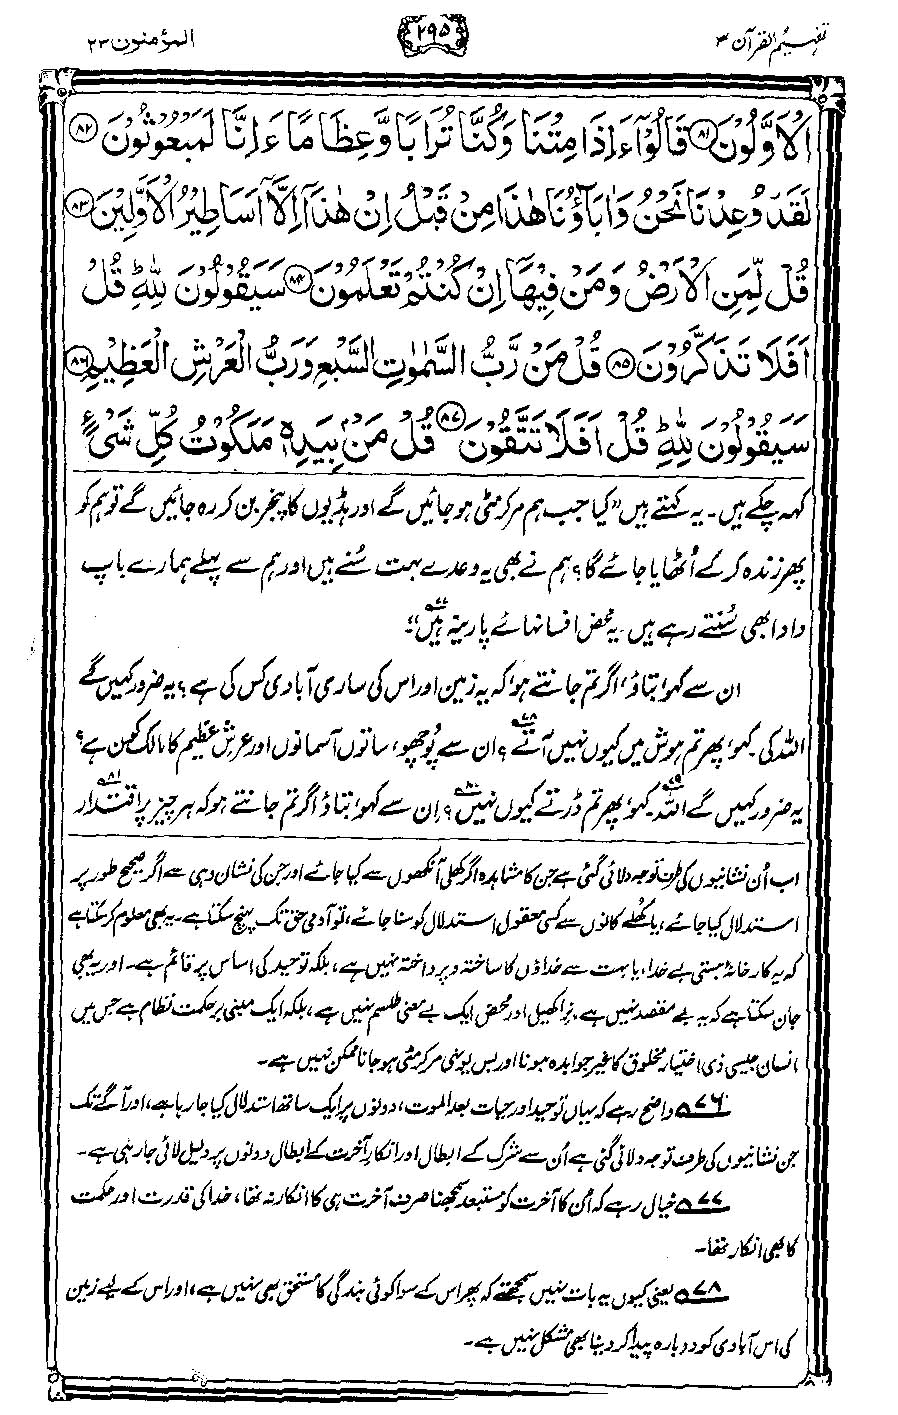 تفہیم القرآن ۳
۲۹۵
المؤمنون ۲۳
الْاَوَّلُوْنَ ﴿۸۱﴾ قَالُوْٓا ءَاِذَا مِتْنَا وَكُنَّا تُرَابًا وَّعِظَامًا ءَاِنَّا لَمَبْعُوْثُوْنَ ﴿۸۲﴾
لَقَدْ وُعِدْنَا نَحْنُ وَاٰبَآؤُنَا هٰذَا مِنْ قَبْلُ اِنْ هٰذَآ اِلَّآ اَسَاطِيْرُ الْاَوَّلِيْنَ ﴿۸۳﴾
قُلْ لِّمَنِ الْاَرْضُ وَمَنْ فِيْهَآ اِنْ كُنْتُمْ تَعْلَمُوْنَ ﴿۸۴﴾ سَيَقُوْلُوْنَ لِلّٰهِ ؕ قُلْ
اَفَلَا تَذَكَّرُوْنَ ﴿۸۵﴾ قُلْ مَنْ رَّبُّ السَّمٰوٰتِ السَّبْعِ وَرَبُّ الْعَرْشِ الْعَظِيْمِ ﴿۸۶﴾
سَيَقُوْلُوْنَ لِلّٰهِ ؕ قُلْ اَفَلَا تَتَّقُوْنَ ﴿۸۷﴾ قُلْ مَنْۢ بِيَدِهٖ مَلَكُوْتُ كُلِّ شَيْءٍ
کہہ چکے ہیں۔ یہ کہتے ہیں ”کیا جب ہم مر کر مٹی ہو جائیں گے اور ہڈیوں کا پنجر بن کر رہ جائیں گے تو ہم کو
پھر زندہ کر کے اُٹھایا جائے گا؟ ہم نے بھی یہ وعدے بہت سُنے ہیں اور ہم سے پہلے ہمارے باپ
دادا بھی سُنتے رہے ہیں۔ یہ محض افسانہائے پارینہ ہیں۷۷“۔
ان سے کہو، بتاؤ، اگر تم جانتے ہو، کہ یہ زمین اور اس کی ساری آبادی کس کی ہے؟ یہ ضرور کہیں گے
اللہ کی۔ کہو، پھر تم ہوش میں کیوں نہیں آتے۷۸؟ ان سے پُوچھو، ساتوں آسمانوں اور عرشِ عظیم کا مالک کون ہے؟
یہ ضرور کہیں گے اللہ۷۹۔ کہو، پھر تم ڈرتے کیوں نہیں۸۰؟ اِن سے کہو، بتاؤ اگر تم جانتے ہو کہ ہر چیز پر اقتدار۸۱
اب اُن نشانیوں کی طرف توجہ دلائی گئی ہے جن کا مشاہدہ اگر کھلی آنکھوں سے کیا جائے اور جن کی نشان دہی سے اگر صحیح طور پر
استدلال کیا جائے، یا کھُلے کانوں سے کسی معقول استدلال کو سنا جائے، تو آدمی حق تک پہنچ سکتا ہے۔ یہ بھی معلوم کر سکتا ہے
کہ یہ کارخانۂ ہستی بے خدا، یا بہت سے خداؤں کا ساختہ و پرداختہ نہیں ہے، بلکہ توحید کی اساس پر قائم ہے۔ اور یہ بھی
جان سکتا ہے کہ یہ بے مقصد نہیں ہے، نرا کھیل اور محض ایک بے معنی طلسم نہیں ہے، بلکہ ایک مبنی بر حکمت نظام ہے جس میں
انسان جیسی ذی اختیار مخلوق کا غیر جوابدہ ہونا اور بس یونہی مر کر مٹی ہو جانا ممکن نہیں ہے۔
۷۶ واضح رہے کہ یہاں توحید اور حیات بعد الموت، دونوں پر ایک ساتھ استدلال کیا جا رہا ہے، اور آگے تک
جن نشانیوں کی طرف توجہ دلائی گئی ہے اُن سے شرک کے ابطال اور انکارِ آخرت کے ابطال دونوں پر دلیل لائی جا رہی ہے۔
۷۷ خیال رہے کہ اُن کا آخرت کو مستبعد سمجھنا صرف آخرت ہی کا انکار نہ تھا، خدا کی قدرت اور حکمت
کا بھی انکار تھا۔
۷۸ یعنی کیوں یہ بات نہیں سمجھتے کہ پھر اس کے سوا کوئی بندگی کا مستحق بھی نہیں ہے، اور اس کے لیے زمین
کی اس آبادی کو دوبارہ پیدا کر دینا بھی مشکل نہیں ہے۔